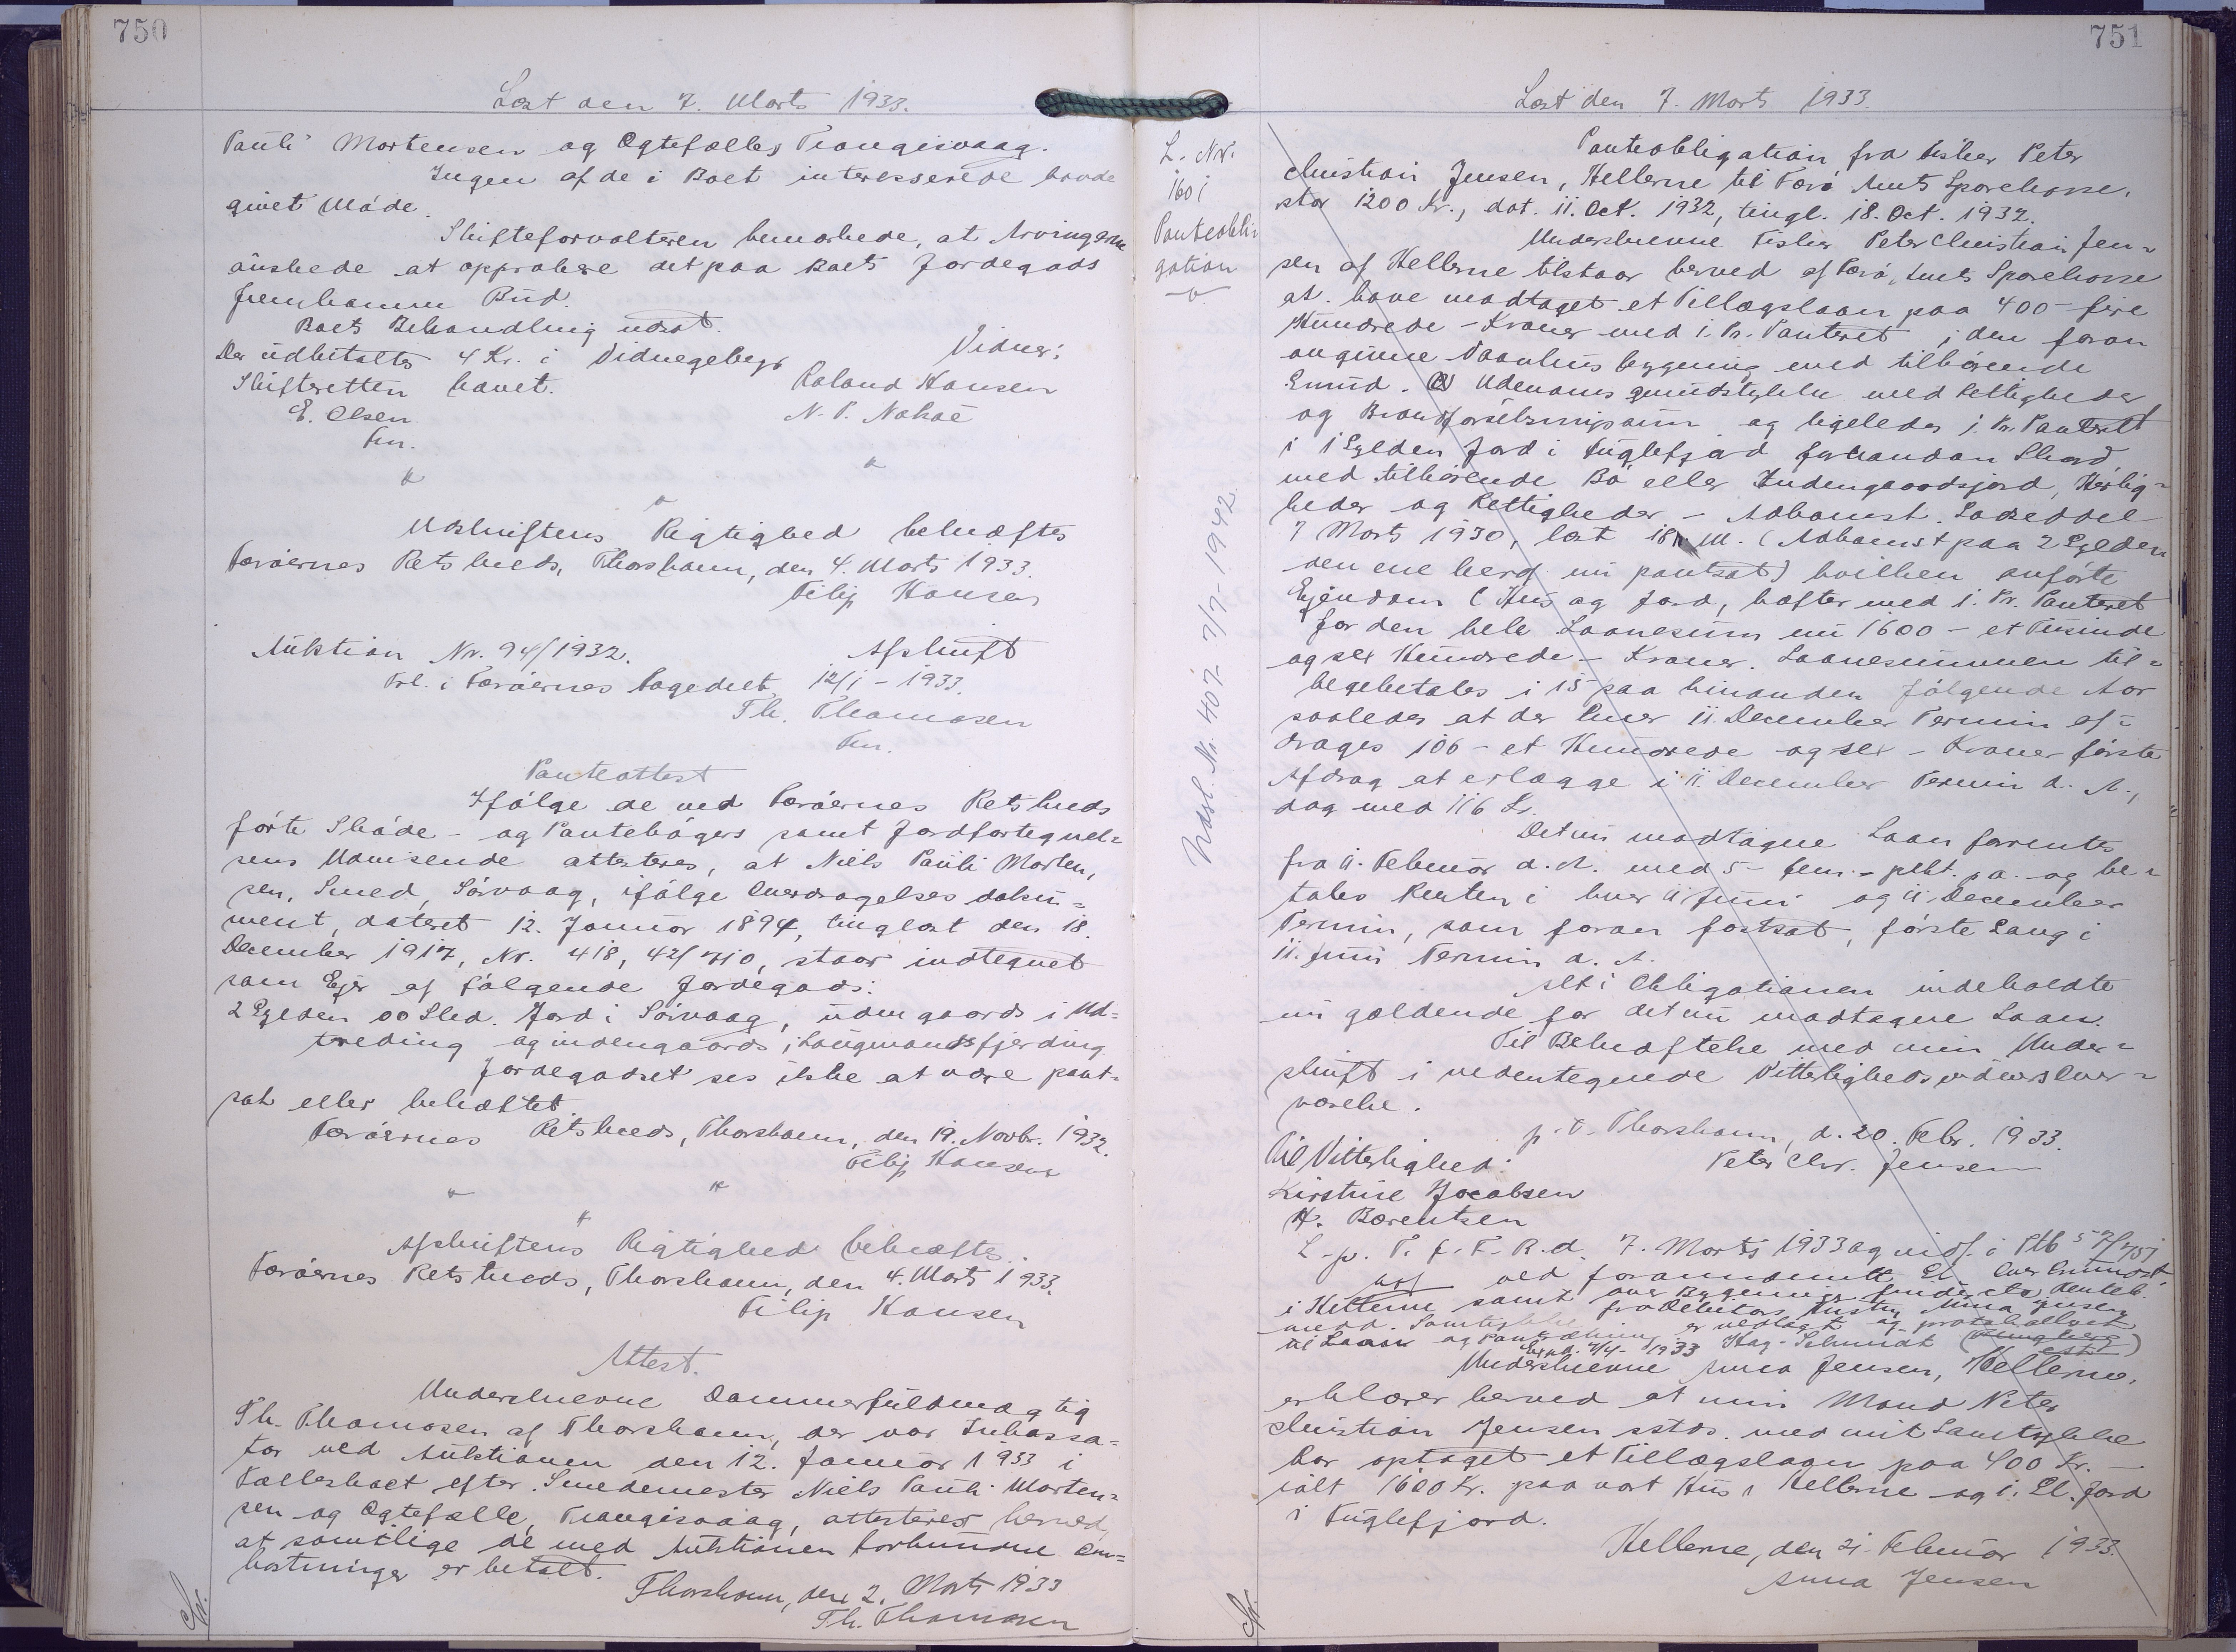 750
Læst den 7. Marts 1933.
Pauli Mortensen og Ægtefælles Trangisvaag.
Ingen af de i Boet interesserede havde
givet Møde.
Skifteforvalteren bemærkede, at Arvingerne
ønskede at approbere det paa Boets Jordegods
fremkomne Bud.
Boets Behandling udsat.
Der udbetaltes 4 Kr. i Vidnegebyr
Vidner:
Skifteretten hævet.
Roland Hansen
E. Olsen
N. P. Nolsøe
Fm.
Udskriftens Rigtighed bekræftes
Færøernes Retskreds, Thorshavn, den 4. Marts 1933.
Filip Hansen
Auktion Nr. 94/1932.
Afskrift
Frl. i Færøernes Fogedret 12/1 - 1933.
Th. Thomasen
Fm.
Panteattest
Ifølge de ved Færøernes Retskreds
førte Skøde- og Pantebøgers samt Jordfortegnel=
sens Udvisende attesteres, at Niels Pauli Morten,
sen, Smed, Sørvaag, ifølge Overdragelses doku=
ment, dateret 12. Januar 1894, tinglæst den 18.
December 1917, Nr. 418, 42/710, staar indtegnet
som Ejer af følgende Jordegods:
2 Gylden 00 Skd. Jord i Sørvaag, udengaards i Ud=
treding og indengaards i Laugmandsfjerding
Jordegodset ses ikke at være pant=
sat eller behæftet.
Færøernes Retskreds, Thorshavn, den 19. Novbr. 1932.
Filip Hansen
Afskriftens Rigtighed bekræftes.
Færøernes Retskreds, Thorshavn, den 4. Marts 1933.
Filip Hansen
Attest.
Underskrevne Dommerfuldmægtig
Th. Thomasen af Thorshavn, der var Inkassa=
tor ved Auktionen den 12. Januar 1933 i
Fællesboet efter Smedemester Niels Pauli Morten=
sen og Ægtefælle, Trangisvaag, attesteres herved,
at samtlige de med Auktionen forbundne Om=
kostninger er betalt.
Thorshavn, den 2. Marts 1933
Th. Thomasen
751
Læst den 7. Marts 1933.
L. Nr.
160i
Panteobli=
gation
Udsl. Nr. 407 7/7-1942
Panteobligation fra Fisker Peter
Christian Jensen, Hellerne til Færø Amts Sparekasse,
stor 1200 Kr., dat. 11. Oct. 1932, tingl. 18. Oct. 1932.
Underskrevne Fisker Peter Christian Jen=
sen af Hellerne tilstaar herved af Færø Amts Sparekasse
at have modtaget et Tillægslaan paa 400 - fire
Hundrede - Kroner med 1. Pr. Panteret i den foran
angivne Vaanhus bygning med tilhørende
Grund. Udenoms grundstykke med Rettigheder
og Brandforsikringssum og ligeledes 1. Pr. Panteret
i 1 Gylden Jord i Fuglefjord
med tilhørende Bø eller Indengaardsjord, Herlig=
heder og Rettigheder - Adkomst. Lodseddel
7 Marts 1930, læst 18 s. M. (Adkomst paa 2 Gylden
den ene heraf nu pantsat) hvilken anførte
Ejendom (Hus og Jord, hæfter med 1. Pr. Panteret
for den hele Laanesum nu 1600 - et Tusinde
og sex Hundrede - Kroner. Laanesummen til=
bagebetales i 15 paa hinanden følgende Aar
saaledes at der hver 11. December Termin af=
drages 106 - et Hundrede og sex - Kroner første
Afdrag at erlægge i 11. December Termin d. A.,
dog med 116 Kr.
Det nu modtagne Laan forrentes
fra 11. Februar d. A. med 5 - fem - pCt. p.a. og be=
tales Renten i hver 11 Juni og 11. December
Termin, som foran fastsat, første Gang i
11. Juni Termin d. A.
Alt i Obligationen indeholdte
nu gældende for det nu modtagne Laan.
Til Bekræftelse med min Under=
skrift i vedentegnede Vitterlighedsvidners Over=
værelse.
p.t. Thorshavn, d. 20. Febr. 1933.
Til Vitterlighed:
Peter Chr. Jensen
Kirstine Jacobsen
H. Bærentsen
L. p. T. f. F. R. d. 7. Marts 1933 og indf. i Ptb 52/751
ved forannævnte
i Hellerne samt
fra Debitors Hustru Anna Jensen
medd. Samtykke er vedlagt og protokolleret
Underskrevne Anna Jensen, Hellerne,
erklærer herved at min Mand Peter
Christian Jensen sstds. med mit Samtykke
har optaget et Tillægslaan paa 400 Kr. -
ialt 1600 Kr. paa vort Hus i Hellerne og 1. Gl. Jord
i Fuglefjord.
Hellerne, den 21. Februar 1933.
Anna Jensen